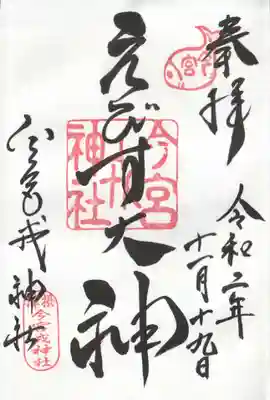 奉拝
令和二年
十一月十九日
えびす大神
今宮
神社
今宮戎神社
今宮戎神社
宮